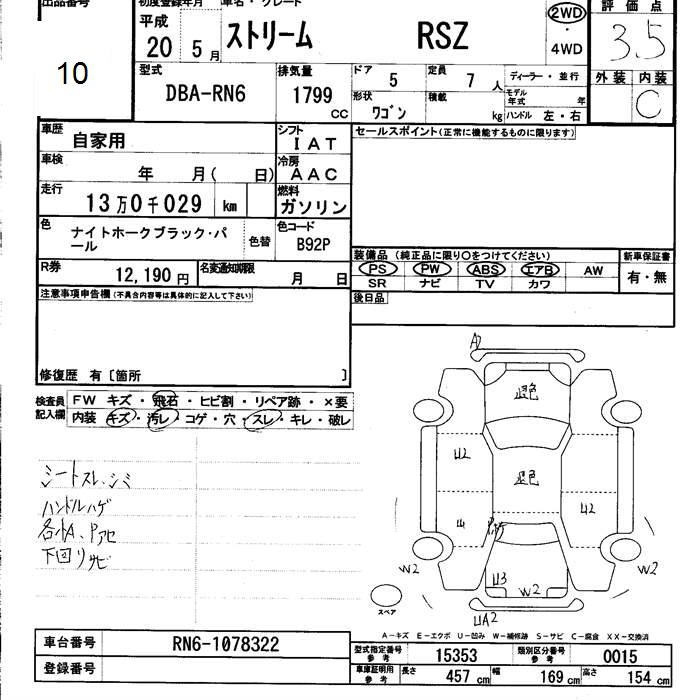 出品番号
初度登録年月
車名・グレード
評価点
平成
20 5月
ストリーム RSZ
2WD
・
4WD
3.5
10
外装 内装
C
型式
DBA-RN6
排気量
1799
CC
ドア
5
定員
7人
ディーラー・並行
形状
ワゴン
積載
kg
モデル年式 年
ハンドル 左・右
車歴
自家用
シフト
IAT
セールスポイント(正常に機能するものに限ります)
車検
年 月( 日)
冷房
AAC
走行
13万0千029 km
燃料
ガソリン
色
ナイトホークブラック・パ
ール
色替
色コード
B92P
装備品 (純正品に限り○をつけてください)
新車保証書
PS PW ABS エアB AW
SR ナビ TV カワ
有・無
R券
12,190円
名変通知期限
月 日
後日品
注意事項申告欄(不具合内容等は具体的に記入して下さい)
修復歴 有〔箇所 〕
検査員
記入欄
FW キズ・飛石・ヒビ割・リペア跡・×要
内装 キズ・汚レ・コゲ・穴・スレ・キレ・破レ
シートスレ、シミ
ハンドルハゲ
各小A、Pアセ
下回リサビ
A2
退色
U2
退色
U2
W2
W2
U3
W2
UA2
スペア
A-キズ E-エクボ U-凹み W-補修跡 S-サビ C-腐食 XX-交換済
車台番号
RN6-1078322
登録番号
型式指定番号
参考
15353
類別区分番号
参考
0015
車庫証明用
参考
長さ
457cm
幅
169cm
高さ
154cm